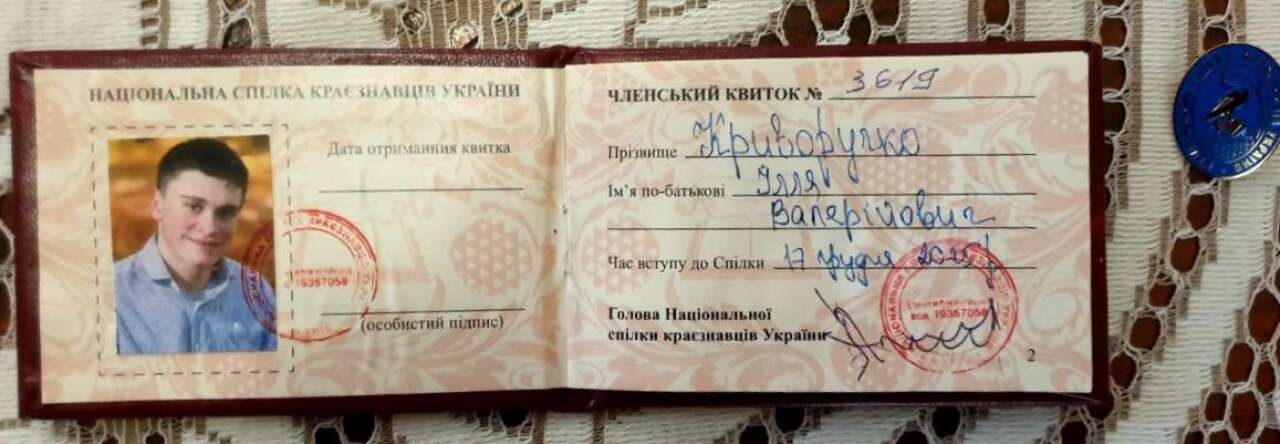 НАЦІОНАЛЬНА СПІЛКА КРАЄЗНАВЦІВ УКРАЇНИ
Дата отримання квитка
(особистий підпис)
19357058
ЧЛЕНСЬКИЙ КВИТОК № 3619
Прізвище Криворучко
Ім’я по-батькові Ілля
Валерійович
Час вступу до Спілки 17 грудня 2025 р
Голова Національної
спілки краєзнавців України
Ідентифікаційний
код 19357058
2